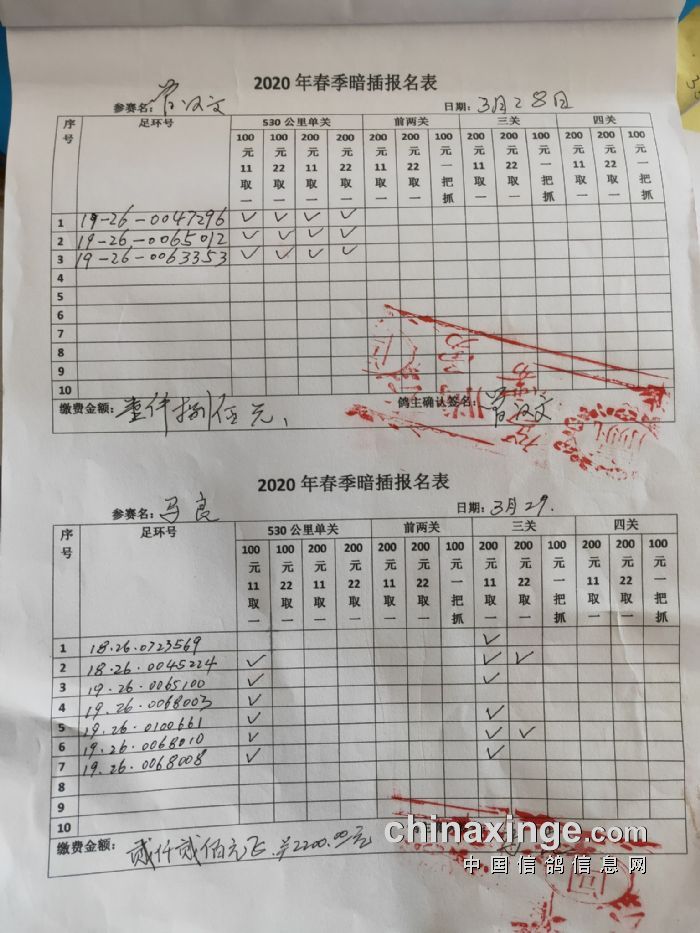 2020年春季暗插报名表
参赛名: 日期: 3月28日
序号 足环号 530公里单关 前两关 三关 四关
100元11取一 100元22取一 200元11取一 200元22取一 200元11取一 200元22取一 100元一把抓 200元11取一 200元22取一 100元一把抓 200元11取一 200元22取一 100元一把抓
1 19-26-0047296 ✓ ✓ ✓ ✓
2 19-26-0065012 ✓ ✓ ✓ ✓
3 19-26-0063353 ✓ ✓ ✓ ✓
4
5
6
7
8
9
10
缴费金额: 壹仟捌佰元 鸽主确认签名:
2020年春季暗插报名表
参赛名: 马良 日期: 3月29.
序号 足环号 530公里单关 前两关 三关 四关
100元11取一 100元22取一 200元11取一 200元22取一 200元11取一 200元22取一 100元一把抓 200元11取一 200元22取一 100元一把抓 200元11取一 200元22取一 100元一把抓
1 18.26.0723569 ✓
2 18.26.0045224 ✓ ✓ ✓
3 19.26.0065100 ✓ ✓
4 19.26.0068003 ✓
5 19.26.0100661 ✓ ✓
6 19.26.0068010 ✓ ✓ ✓
7 19.26.0068008 ✓ ✓
8
9
10
缴费金额: 贰仟贰佰元正 ¥2200.00元
chinaxinge.com
中国信鸽信息网